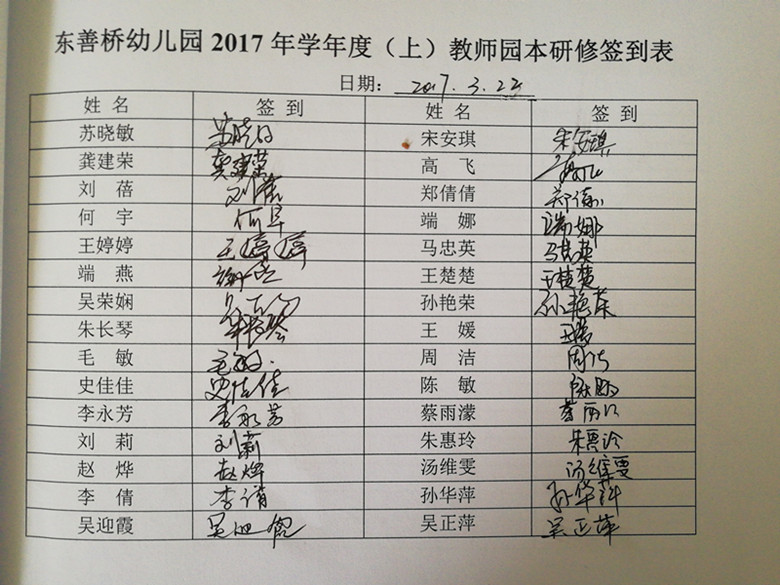 东善桥幼儿园 2017 年学年度（上）教师园本研修签到表
日期： 2017. 3. 22
姓 名 签 到 姓 名 签 到
苏晓敏 宋安琪 宋安琪
龚建荣 龚建荣 高 飞
刘 蓓 刘蓓 郑倩倩
何 宇 端 娜 端娜
王婷婷 王婷婷 马忠英
端 燕 王楚楚 王楚楚
吴荣娴 孙艳荣 孙艳荣
朱长琴 朱长琴 王 媛
毛 敏 毛敏 周 洁 周洁
史佳佳 史佳佳 陈 敏
李永芳 李永芳 蔡雨濛
刘 莉 刘莉 朱惠玲 朱惠玲
赵 烨 赵烨 汤维雯 汤维雯
李 倩 李倩 孙华萍 孙华萍
吴迎霞 吴正萍 吴正萍